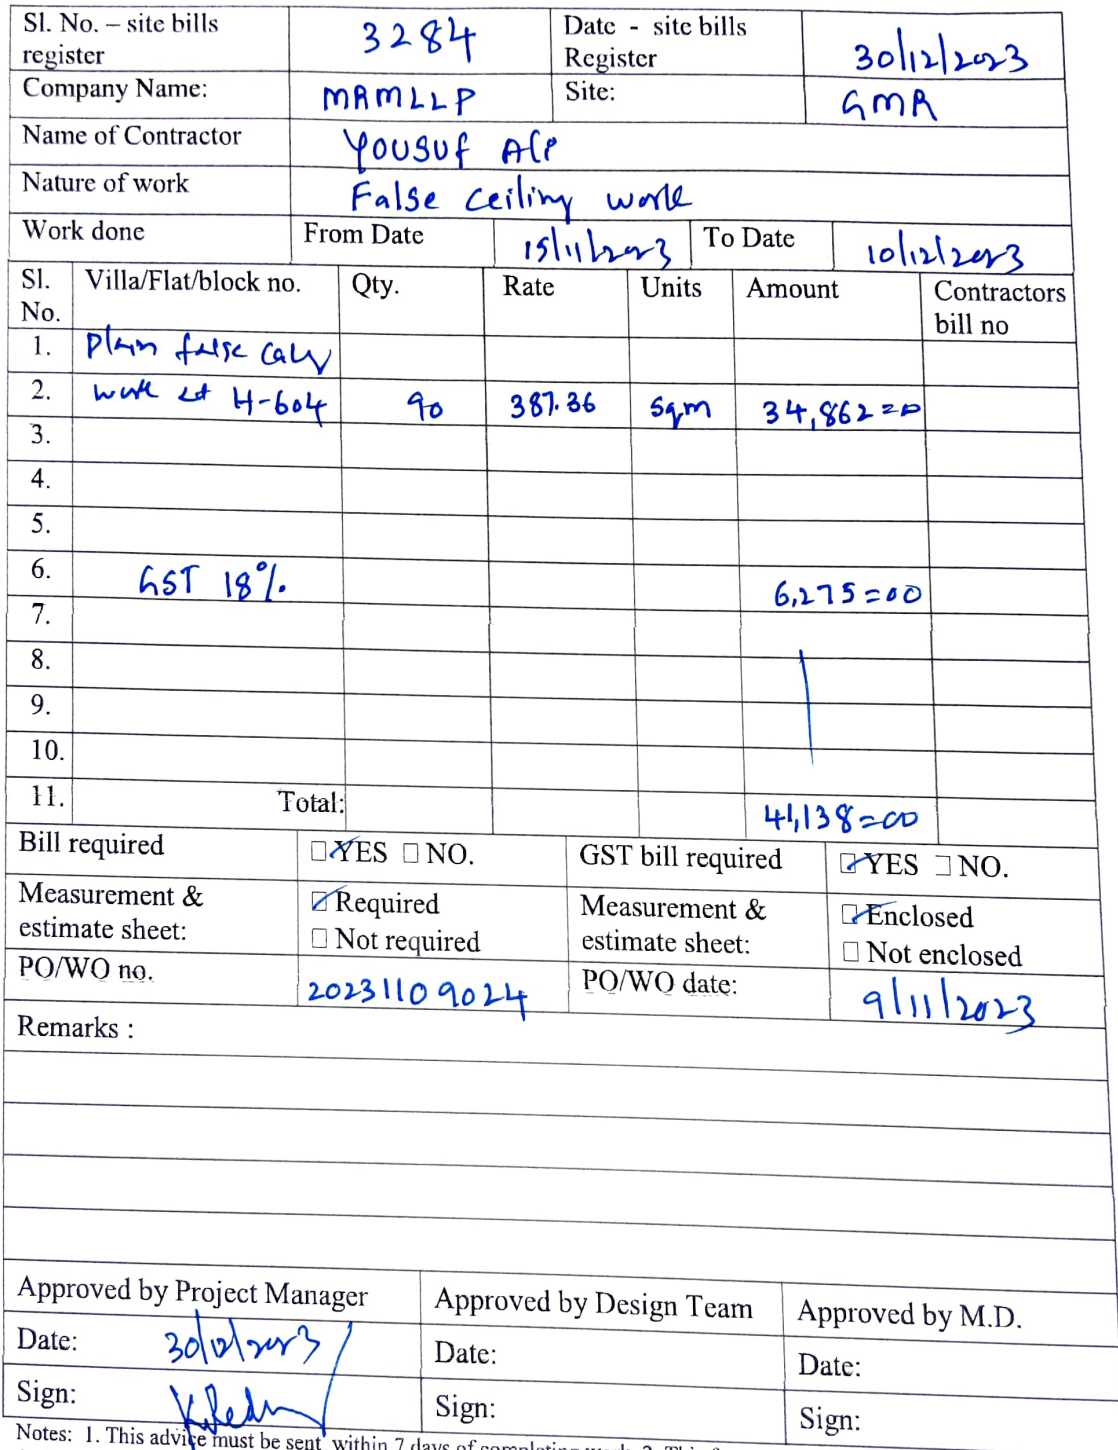 Sl. No. – site bills register 3284 Date - site bills Register 30/12/2023
Company Name: MRMLLP Site: GMR
Name of Contractor Yousuf Ali
Nature of work False ceiling work
Work done From Date 15/11/2023 To Date 10/12/2023
Sl. No. Villa/Flat/block no. Qty. Rate Units Amount Contractors bill no
1. Plain false
2. work at H-604 90 387.36 Sqm 34,862=00
3.
4.
5.
6. GST 18% 6,275=00
7.
8.
9.
10.
11. Total: 41,138=00
Bill required YES NO. GST bill required YES NO.
Measurement & estimate sheet: Required Not required Measurement & estimate sheet: Enclosed Not enclosed
PO/WO no. 20231109024 PO/WO date: 9/11/2023
Remarks :
Approved by Project Manager Approved by Design Team Approved by M.D.
Date: 30/12/2023 Date: Date:
Sign: Sign: Sign:
Notes: 1. This advice must be sent within 7 days of completing work. 2. This